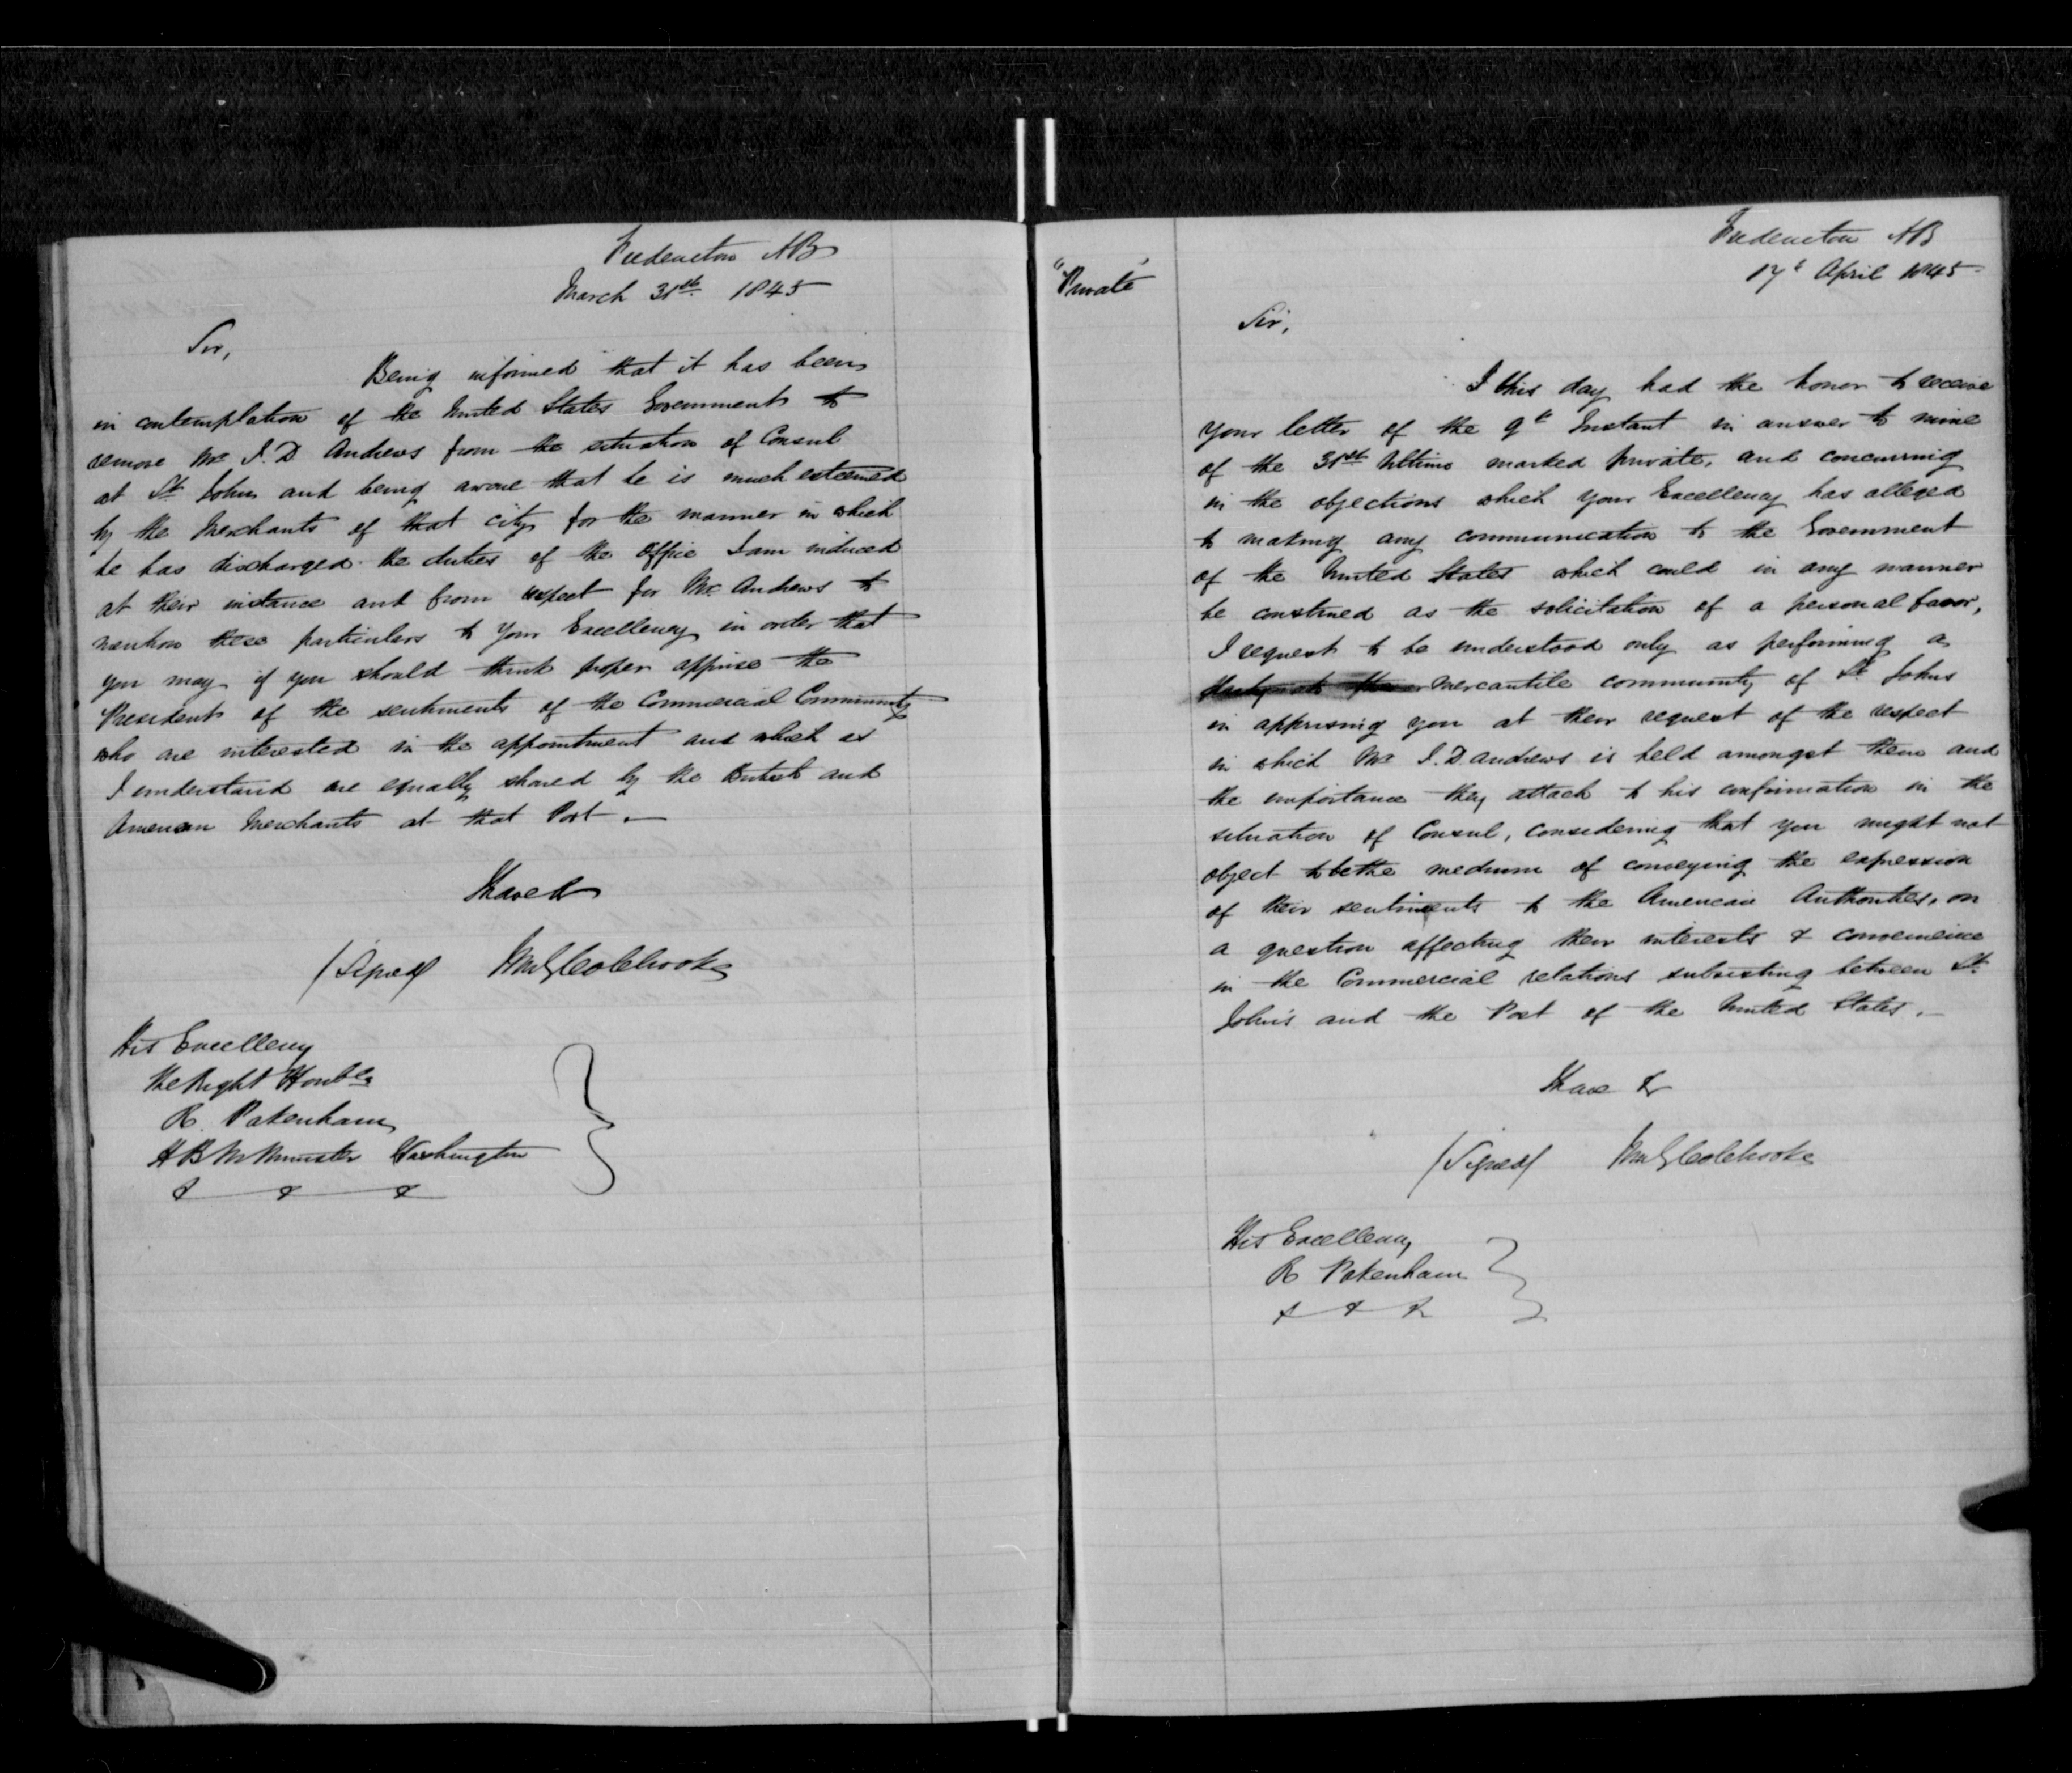 Fredericton NB
March 31st 1845
Sir,
Being informed that it has been
in contemplation of the United States Government to
remove Mr I. D Andrews from the situation of Consul
at St John and being aware that he is much esteemed
by the Merchants of that city for the manner in which
he has discharged the duties of the Office I am induced
at their instance and from respect for Mr Andrews to
mention these particulars to Your Excellency in order that
you may if you should think proper apprise the
President of the sentiments of the Commercial Community
who are interested in the appointment and which as
I understand are equally shared by the British and
American Merchants at that Port.—
I have &
(Signed) WmGColebrooke
His Excellency
The Right Honble
R. Pakenham
H B M Minister Washington
& & &
"Private"
Fredericton NB
17t April 1845
Sir,
I this day had the honor to receive
your letter of the 9t Instant in answer to mine
of the 31st Ultimo marked private, and concurring
in the objections which Your Excellency has alleged
to making any communication to the Government
of the United States which could in any manner
be construed as the solicitation of a personal favor,
I request to be understood only as performing a
Mercantile community of St Johns
in apprising you at their request of the respect
in which Mr I. D. Andrews is held amongst them and
the importance they attach to his confirmation in the
situation of Consul, considering that you might not
object to be the medium of conveying the expression
of their sentiments to the American Authorities, on
a question affecting their interests & convenience
in the Commercial relations subsisting between St
John's and the Port of the United States.—
I have &
(Signed) WmGColebrooke
His Excellency
R Pakenham
& & &